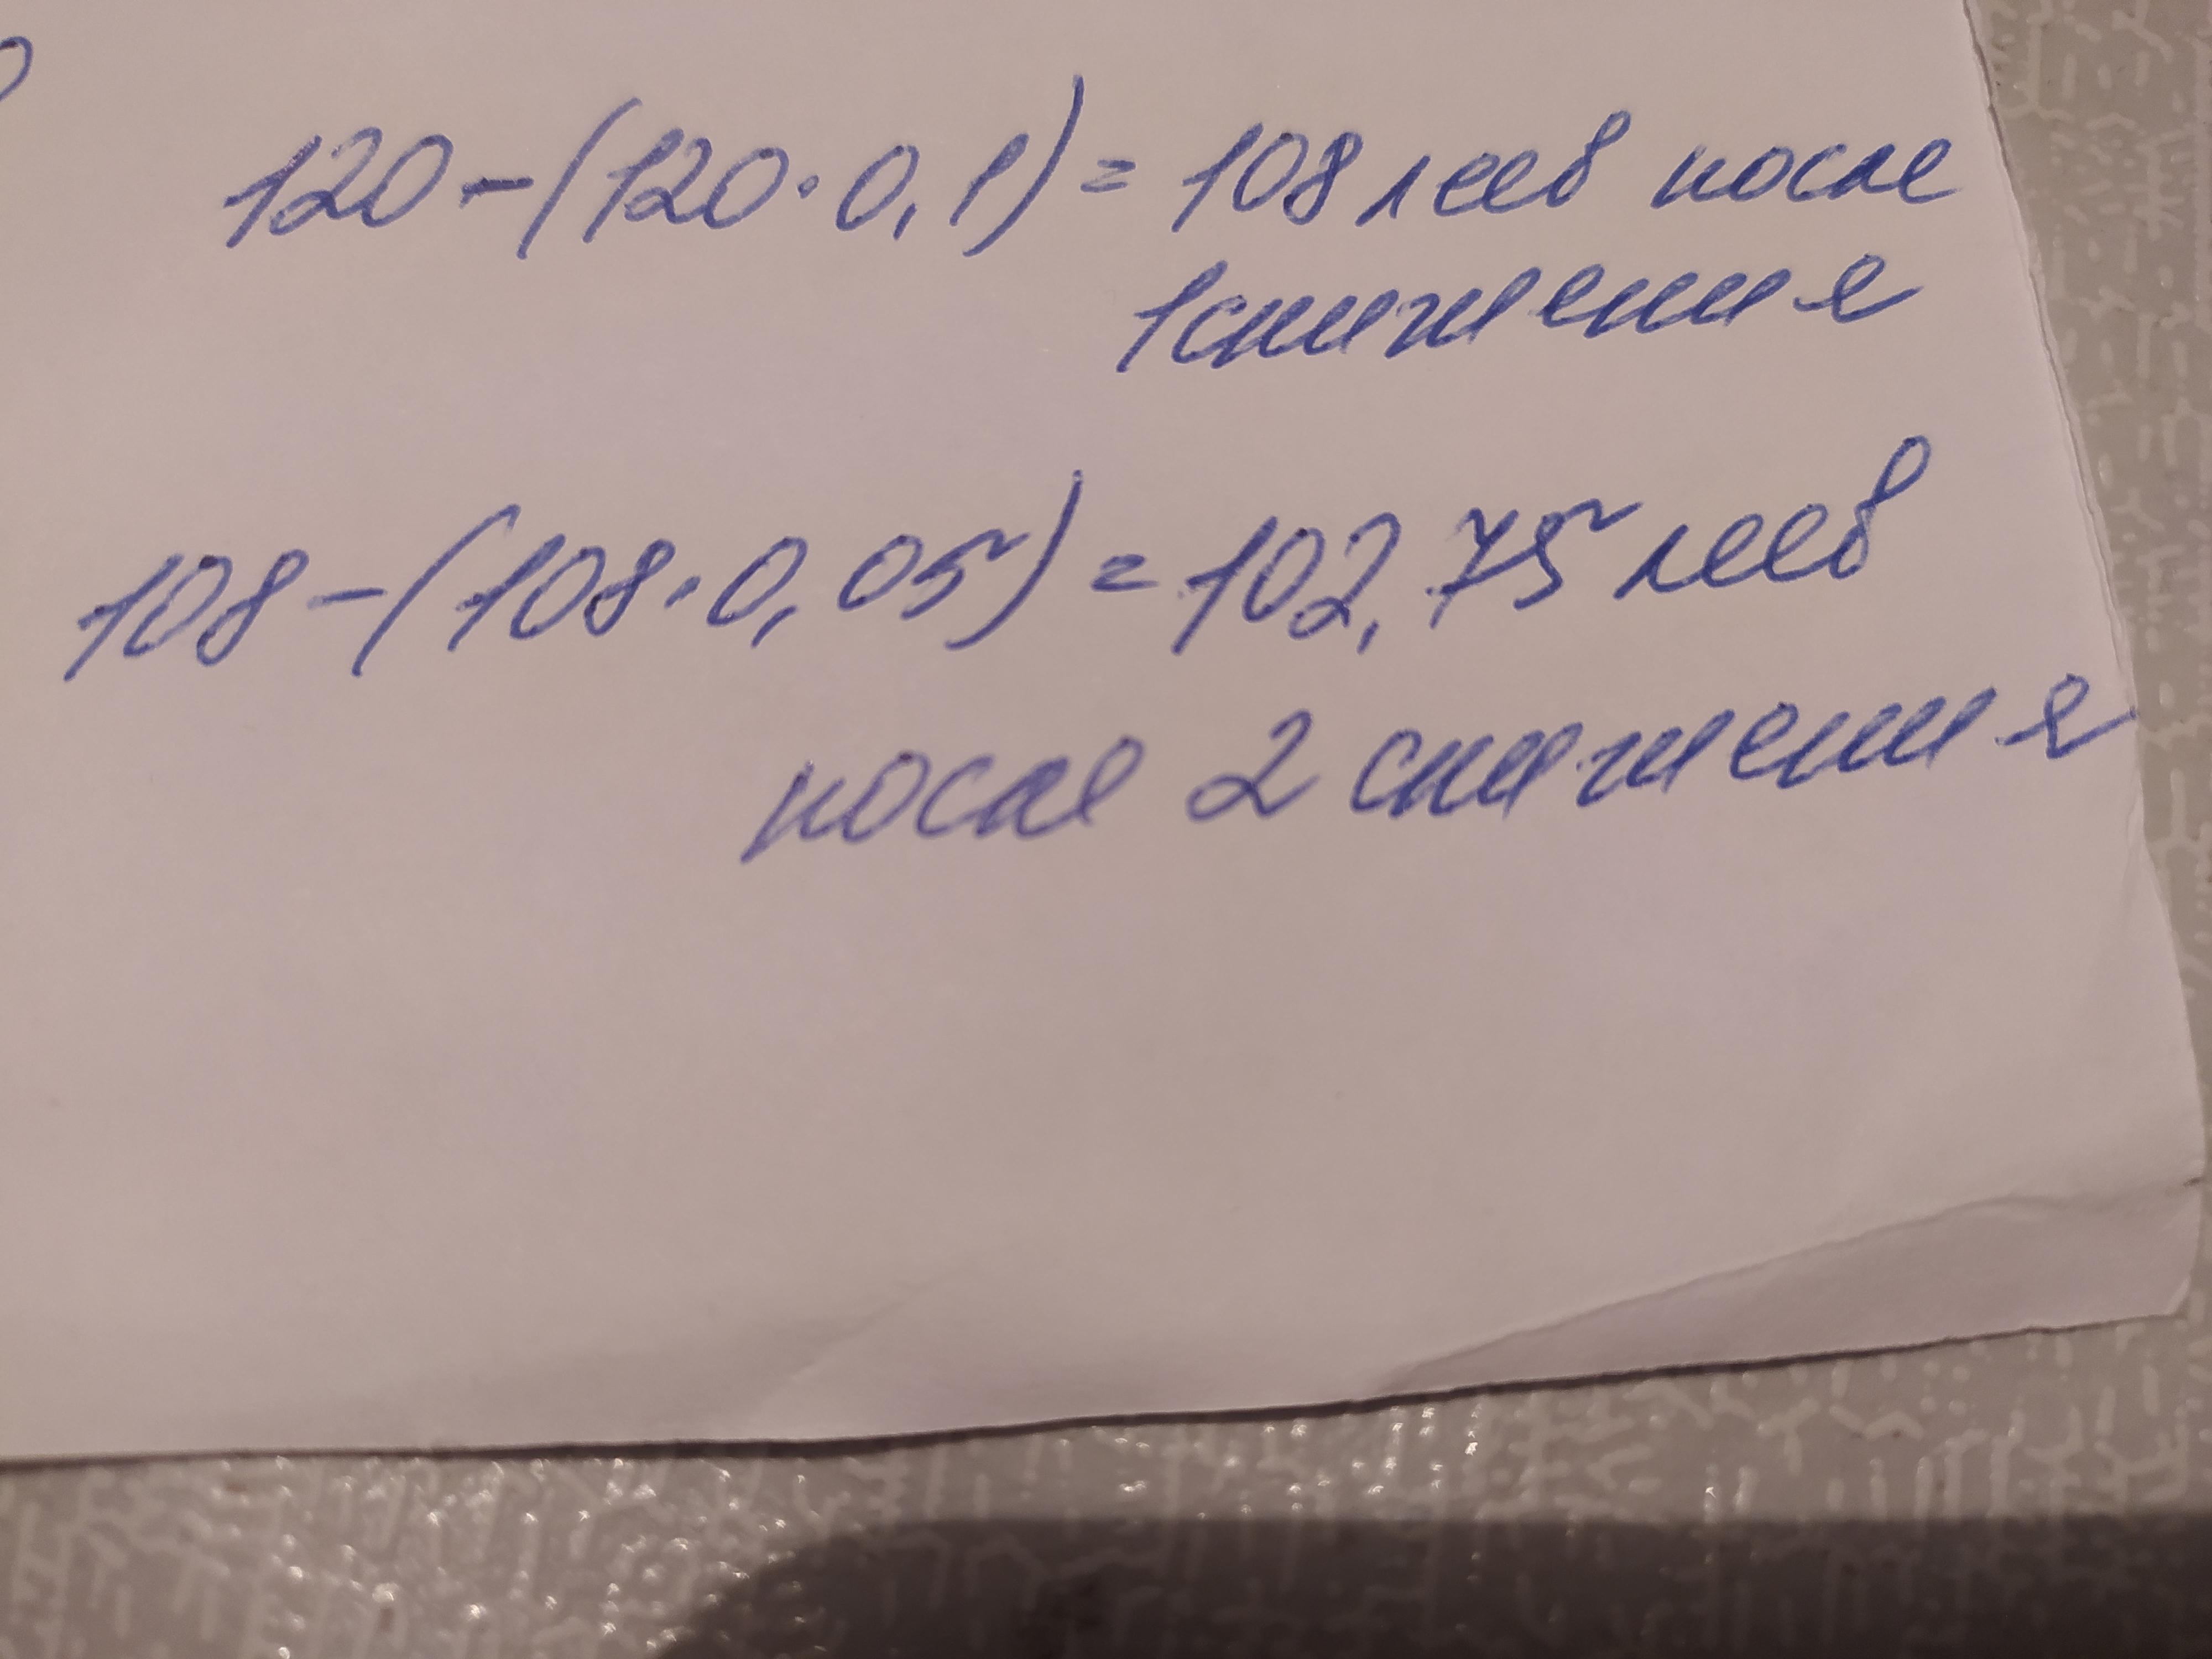 120-(120·0,1)=108 леев после
1 снижения
108-(108·0,05)=102,75 леев
после 2 снижения